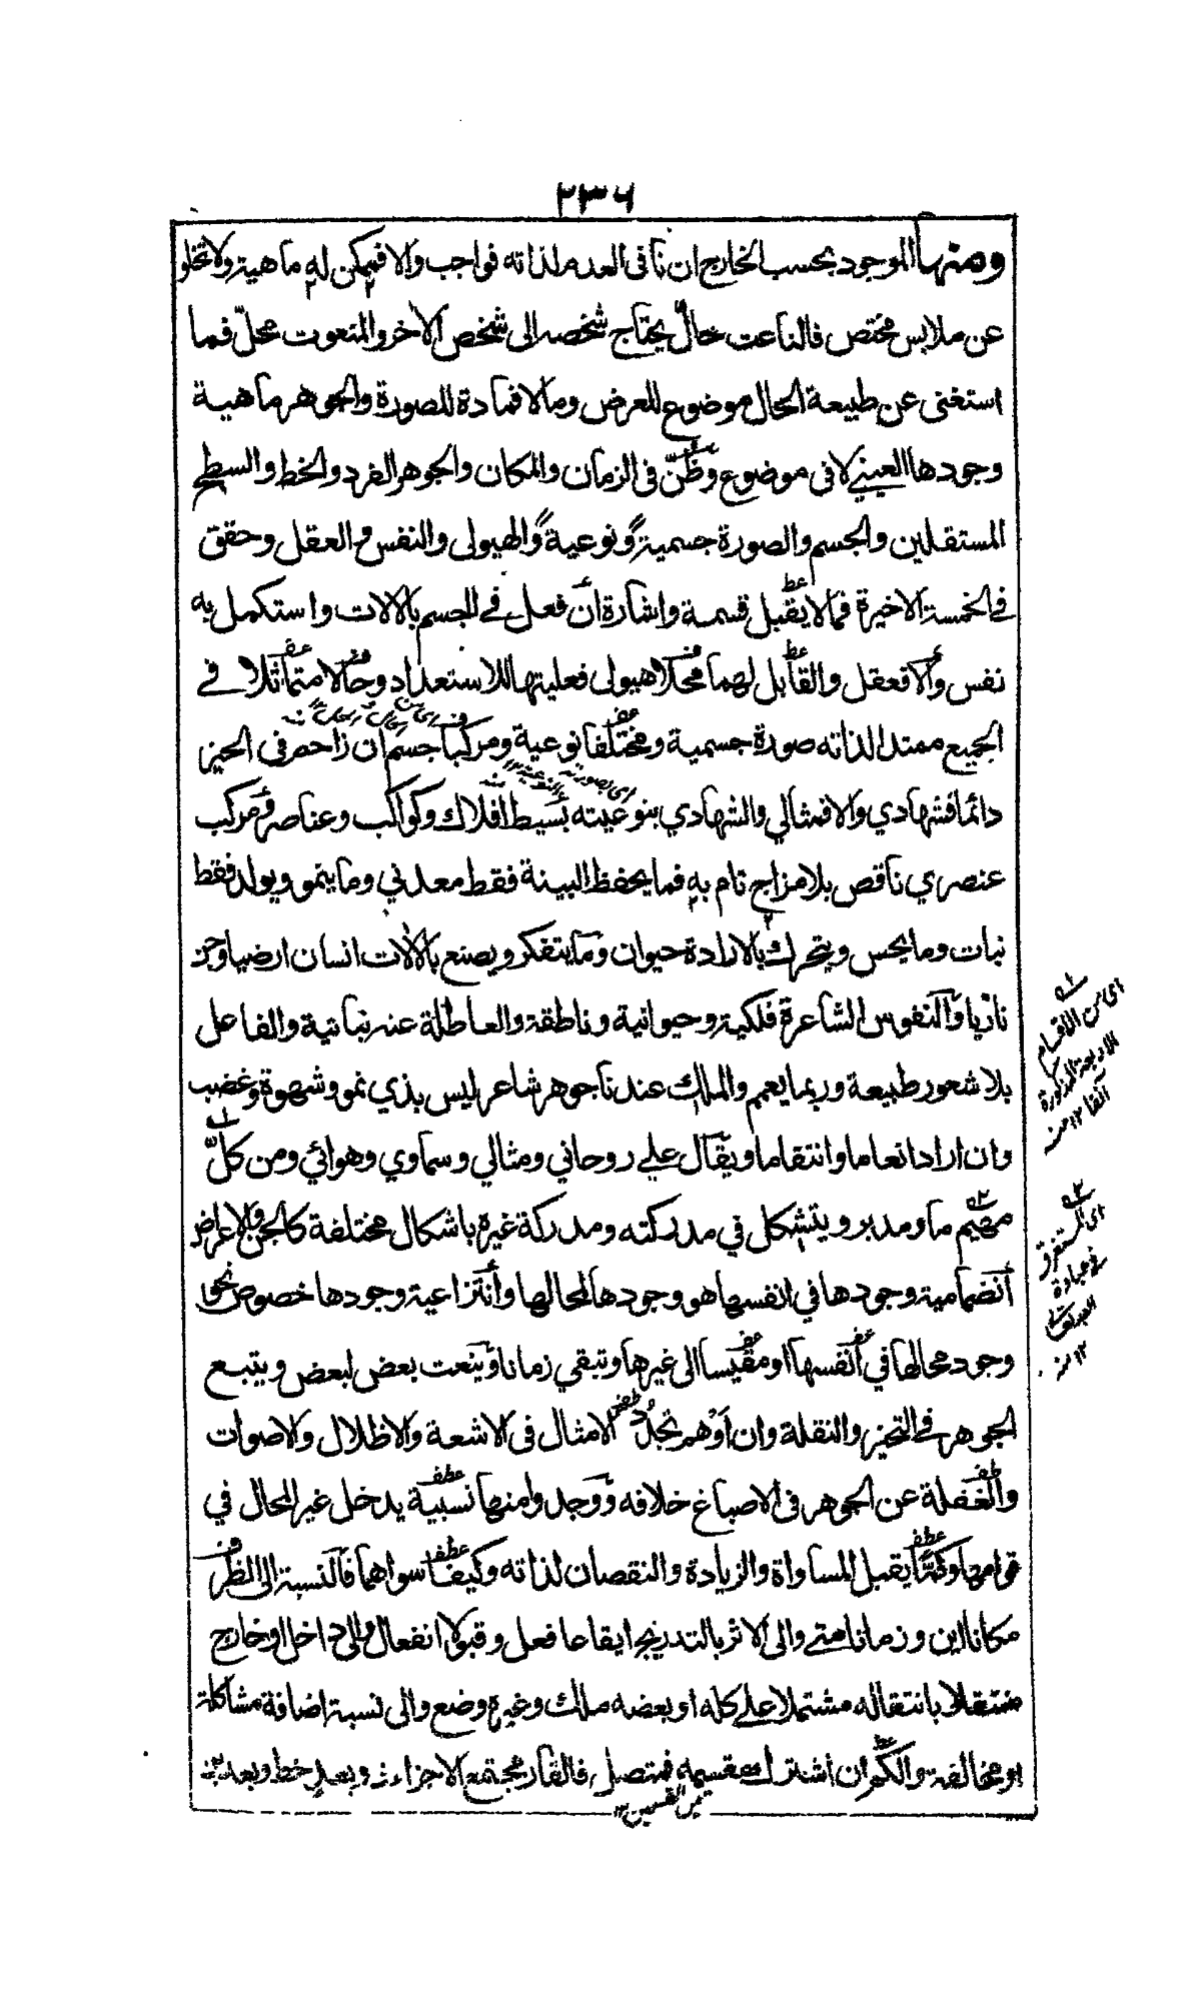 ٢٣٦
ومنها الموجود بحسب الخارج ان نافى العدم لذاته فواجب والا فممكن له ماهية ولا تخلو
عن ملابس مختص فالناعت حال يحتاج شخصه الى شخص الاخر والمنعوت محل فما
استغنى عن طبيعة الحال موضوع للعرض وما لا فمادة للصورة والجوهر ماهية
وجودها العيني لا في موضوع وظن في الزمان والمكان والجوهر الفرد والخط والسطح
المستقلين والجسم والصورة جسمية ونوعية والهيولى والنفس والعقل وحقق
في الخمسة الاخيرة فما لا يقبل قسمة واشارة ان فعل في الجسم بالالات واستكمل به
نفس والا فعقل والقابل لهما محلا هيولى فعليتها للاستعداد وحالا متماثلا في
الجميع ممتدا لذاته صورة جسمية ومختلفا نوعية ومركبا جسم ان زاحم في الحيز
دائما فشهادي والا فمثالي والشهادي بنوعيته بسيط افلاك وكواكب وعناصر ومركب
عنصري ناقص بلا مزاج تام به فما يحفظ البينة فقط معدني وما ينمو ويولد فقط
نبات وما يحس ويتحرك بالارادة حيوان وما يتفكر ويصنع بالالات انسان ارضيا وجن
ناريا والنفوس الشاعرة فلكية وحيوانية وناطقة والعاطلة عنه نباتية والفاعل
بلا شعور طبيعة وربما يعمم والملك عندنا جوهر شاعر ليس بذي نمو وشهوة وغضب
وان اراد انعاما وانتقاما ويقال على روحاني ومثالي وسماوي وهوائي ومن كل
مهيم ما ومدبر ويتشكل في مدركته ومدركة غيره باشكال مختلفة كالجن والاعراض
انضمامية وجودها في انفسها هو وجودها لمحالها وانتزاعية وجودها خصوص نحو
وجود محالها في انفسها او مقيسا الى غيرها وتبقي زمانا وينعت بعض لبعض ويتبع
الجوهر في التحيز والنقلة وان اوهم تجدد الامثال في الاشعة والاظلال والاصوات
والغفلة عن الجوهر في الاصباغ خلافه ووجد وامنها نسبية يدخل غير المحال في
قوامها وكما يقبل المساواة والزيادة والنقصان لذاته وكيفا سواهما فالنسبة الى الظرف
مكانا اين وزمانا متى والى الاثر بالتدريج ايقاعا فعل وقبولا انفعال والى داخل او خارج
منتقلا بانتقاله مشتملا على كله او بعضه ملك وغيره وضع والى نسبة اضافة مشاكلة
او مخالفة والكم ان اشترك مقسمه فمتصل فالقار مجتمع الاجزاء ذو بعد خط وبعدين
بين القسمين ١٢
اى من الاقسام
الاربعة المذكورة
آنفا ١٢ منه
اى المستغرق
في عبادة
١٢ منه